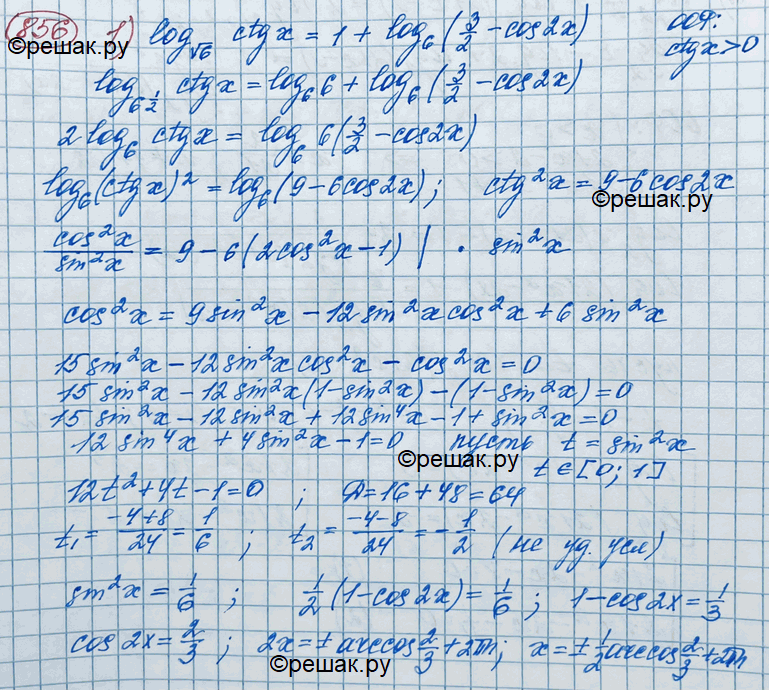 856 1) log_√6 ctg x = 1 + log_6 (3/2 - cos2x) одз:
©решак.ру ctg x > 0
log_6^(1/2) ctg x = log_6 6 + log_6 (3/2 - cos2x)
2 log_6 ctg x = log_6 6(3/2 - cos2x)
log_6 (ctg x)^2 = log_6 (9 - 6cos2x); ctg^2 x = 9 - 6cos2x
©решак.ру
cos^2 x / sin^2 x = 9 - 6(2cos^2 x - 1) | · sin^2 x
cos^2 x = 9sin^2 x - 12sin^2 x cos^2 x + 6 sin^2 x
15sin^2 x - 12sin^2 x cos^2 x - cos^2 x = 0
15 sin^2 x - 12sin^2 x (1 - sin^2 x) - (1 - sin^2 x) = 0
15 sin^2 x - 12sin^2 x + 12sin^4 x - 1 + sin^2 x = 0
12 sin^4 x + 4sin^2 x - 1 = 0 пусть t = sin^2 x
©решак.ру t ∈ [0; 1]
12t^2 + 4t - 1 = 0 ; D = 16 + 48 = 64
t_1 = (-4+8)/24 = 1/6 ; t_2 = (-4-8)/24 = -1/2 (не уд. усл)
sin^2 x = 1/6 ; 1/2 (1 - cos2x) = 1/6 ; 1 - cos2x = 1/3
cos 2x = 2/3 ; 2x = ± arccos 2/3 + 2πn; x = ± 1/2 arccos 2/3 + 2πn
©решак.ру